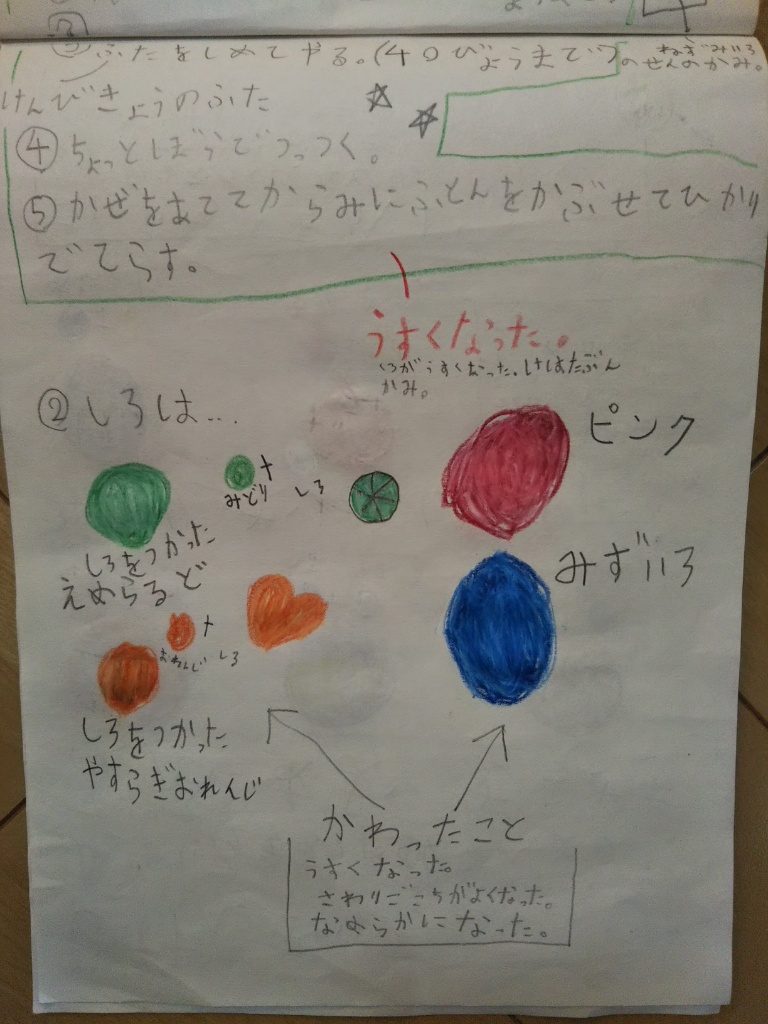 ③ ふたをしめてやる。(40びょうまで)の
ねずみいろ
せんのかみ。
けんびきょうのふた
④ ちょっとぼうでつっつく。
⑤ かぜをあててからみにふとんをかぶせてひかり
でてらす。
うすくなった。
くろがうすくなった。けはたぶん
かみ。
② しろは…
ピンク
みどり + しろ
しろをつかった
えめらるど
みずいろ
おれんじ + しろ
しろをつかった
やすらぎおれんじ
かわったこと
うすくなった。
さわりごこちがよくなった。
なめらかになった。